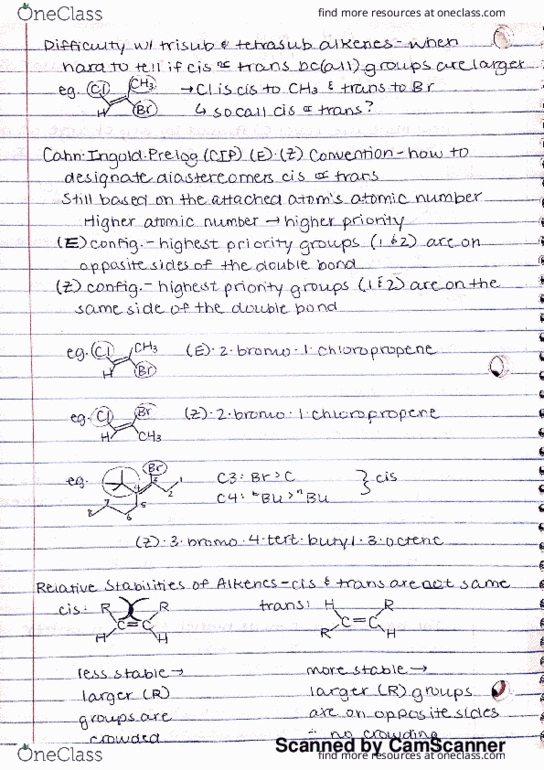 OneClass
find more resources at oneclass.com
Difficulty w/ trisub & tetrasub alkenes - when
hard to tell if cis or trans bc (all) groups are larger
eg. Cl CH3 → Cl is cis to CH3 & trans to Br
H Br ↳ so call cis or trans?
Cahn·Ingold·Prelog (CIP) (E)·(Z) Convention - how to
designate diastereomers cis or trans
Still based on the attached atom's atomic number
Higher atomic number → higher priority
(E) config. - highest priority groups (1 & 2) are on
opposite sides of the double bond
(Z) config. - highest priority groups (1 & 2) are on the
same side of the double bond
eg. Cl CH3 (E)·2·bromo·1·chloropropene
H Br
eg. Cl Br (Z)·2·bromo·1·chloropropene
H CH3
eg. Br C3: Br > C } cis
4 3 2 1 C4: tBu > nBu
8 7 6 5
(Z)·3·bromo·4·tert·butyl·3·octene
Relative Stabilities of Alkenes - cis & trans are not same
cis: R R trans: H R
C=C C=C
H H R H
less stable → more stable →
larger (R) larger (R) groups
groups are are on opposite sides
crowded ∴ no crowding
Scanned by CamScanner
OneClass
find more resources at oneclass.com